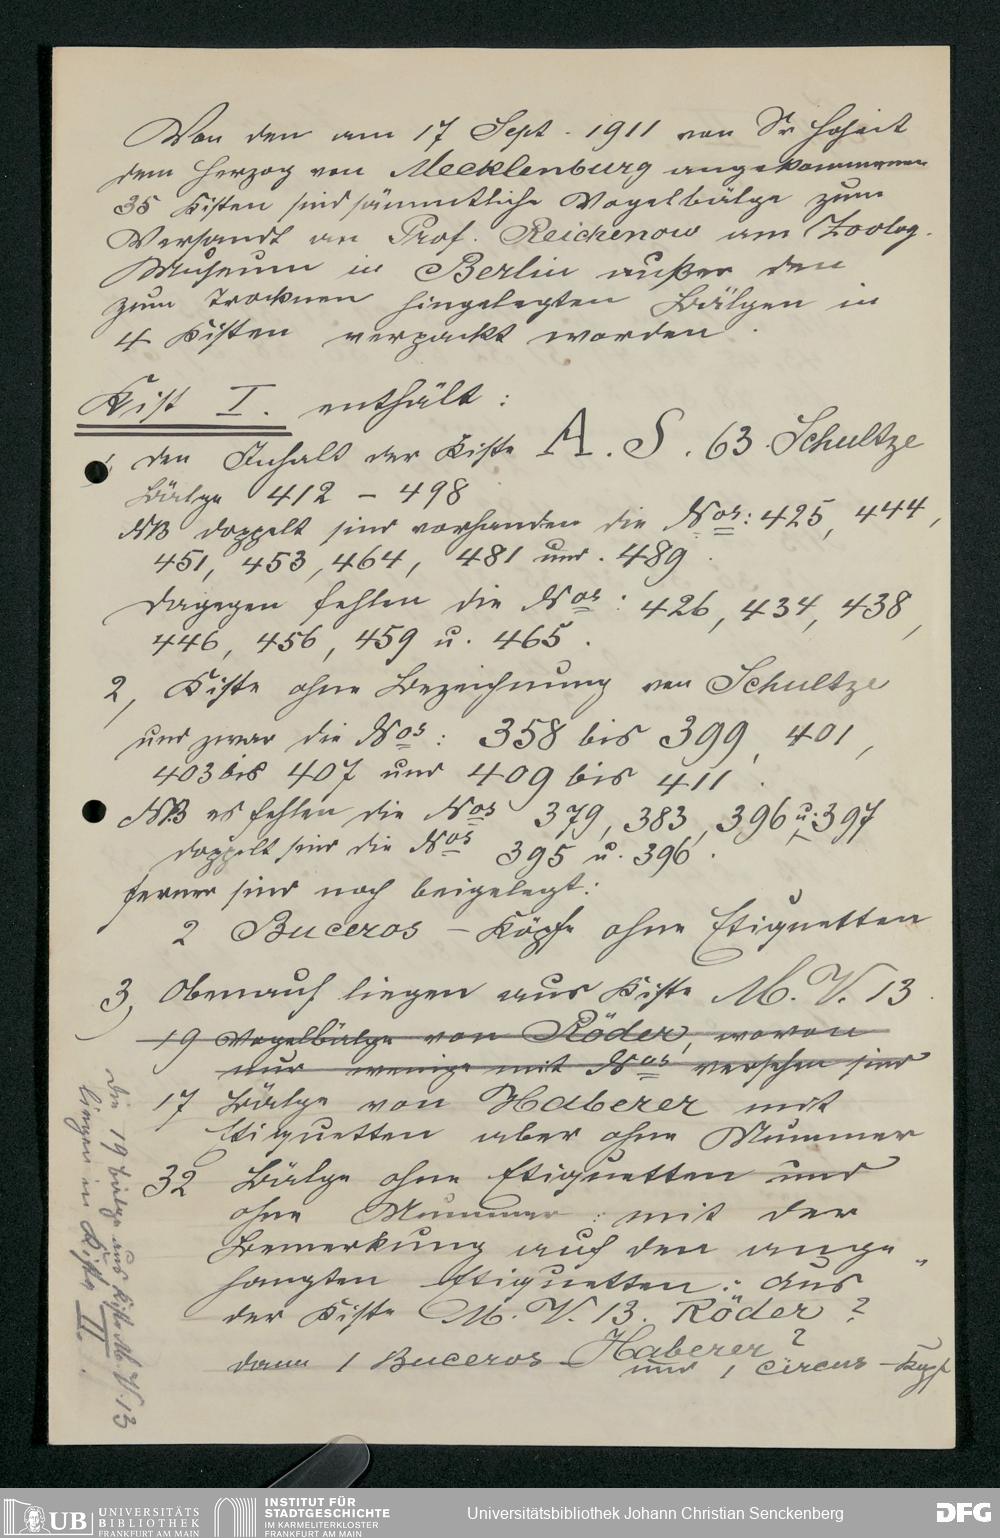 Von den am 17 Sept. 1911 von Sr Hoheit
dem Herzog von Mecklenburg angekommenen
35 Kisten sind sämmtliche Vogelbälge zum
Versandt an Prof. Reichenow am Zoolog.
Museum in Berlin außer den
zum Trocknen hingelegten Bälgen in
4 Kisten verpackt worden.
Kist I. enthält:
1, den Inhalt der Kiste A. S. 63 Schultze
Bälge 412 – 498
NB doppelt sind vorhanden die Nos: 425, 444,
451, 453, 464, 481 und. 489.
dagegen fehlen die Nos: 426, 434, 438,
446, 456, 459 u. 465.
2, Kiste ohne Bezeichnung von Schultze
und zwar die Nos: 358 bis 399, 401,
403 bis 407 und 409 bis 411.
NB es fehlen die Nos 379, 383, 396 u. 397
doppelt sind die Nos 395 u. 396.
ferner sind noch beigelegt:
2 Buceros – Köpfe ohne Etiquetten
3, Obenauf liegen aus Kiste M. V. 13.
19 Vogelbälge von Röder, wovon
nur wenige mit Nos versehen sind
17 Bälge von Haberer mit
Etiquetten aber ohne Nummer
32 Bälge ohne Etiquetten und
ohne Nummer: mit der
Bemerkung auf den ange-
hangten Etiquetten: „Aus
der Kiste M. V. 13. Röder?
Haberer?
dann 1 Buceros und 1 Circus – Kopf
Die 19 Bälge aus Kiste M. V. 13
liegen in Kiste II.
UB UNIVERSITÄTS
BIBLIOTHEK
FRANKFURT AM MAIN
INSTITUT FÜR
STADTGESCHICHTE
IM KARMELITERKLOSTER
FRANKFURT AM MAIN
Universitätsbibliothek Johann Christian Senckenberg
DFG